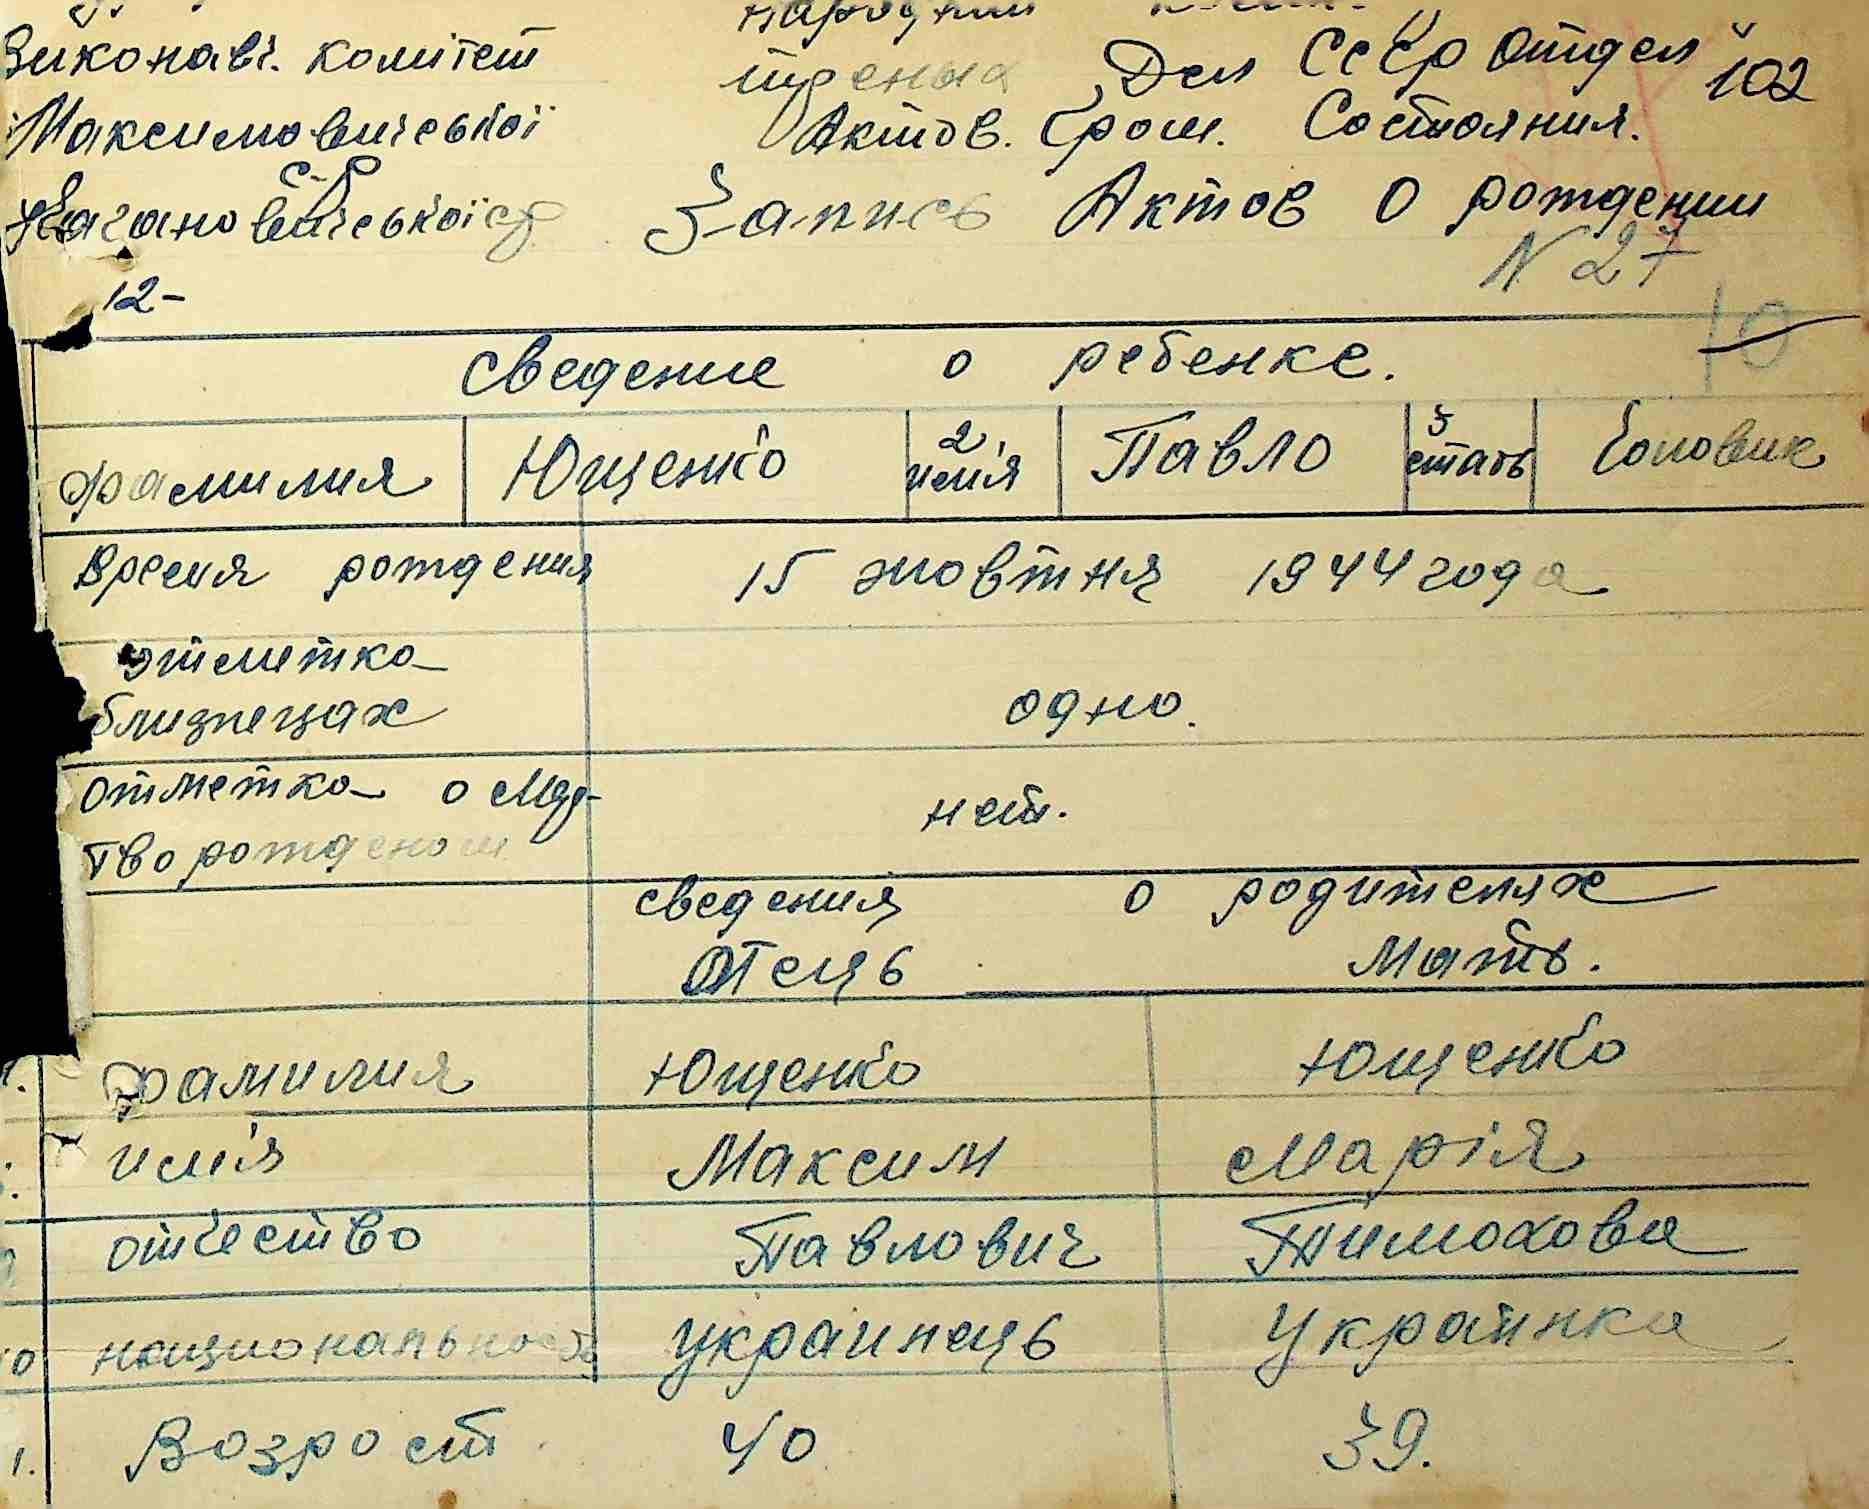 Виконавч. комітет
Максимовичської
с-р
Кагановичської ср
12-
Дел СССР Отдел
102
Актов. Грош. Состояния.
Запись Актов о рождении
N 27
10
сведение о ребенке.
фамилия Ющенко 2 имiя Павло 3 стать Чоловик
время рождения 15 жовтня 1944 года
отметка
близнецах одно.
отметка о мер-
тво рожденом нет.
сведения о родителях
Отець Мать.
фамилия Ющенко Ющенко
имiя Максим Марія
отчество Павлович Тимохова
10 национальность украинець Украинка
1. Возрост 40 39.